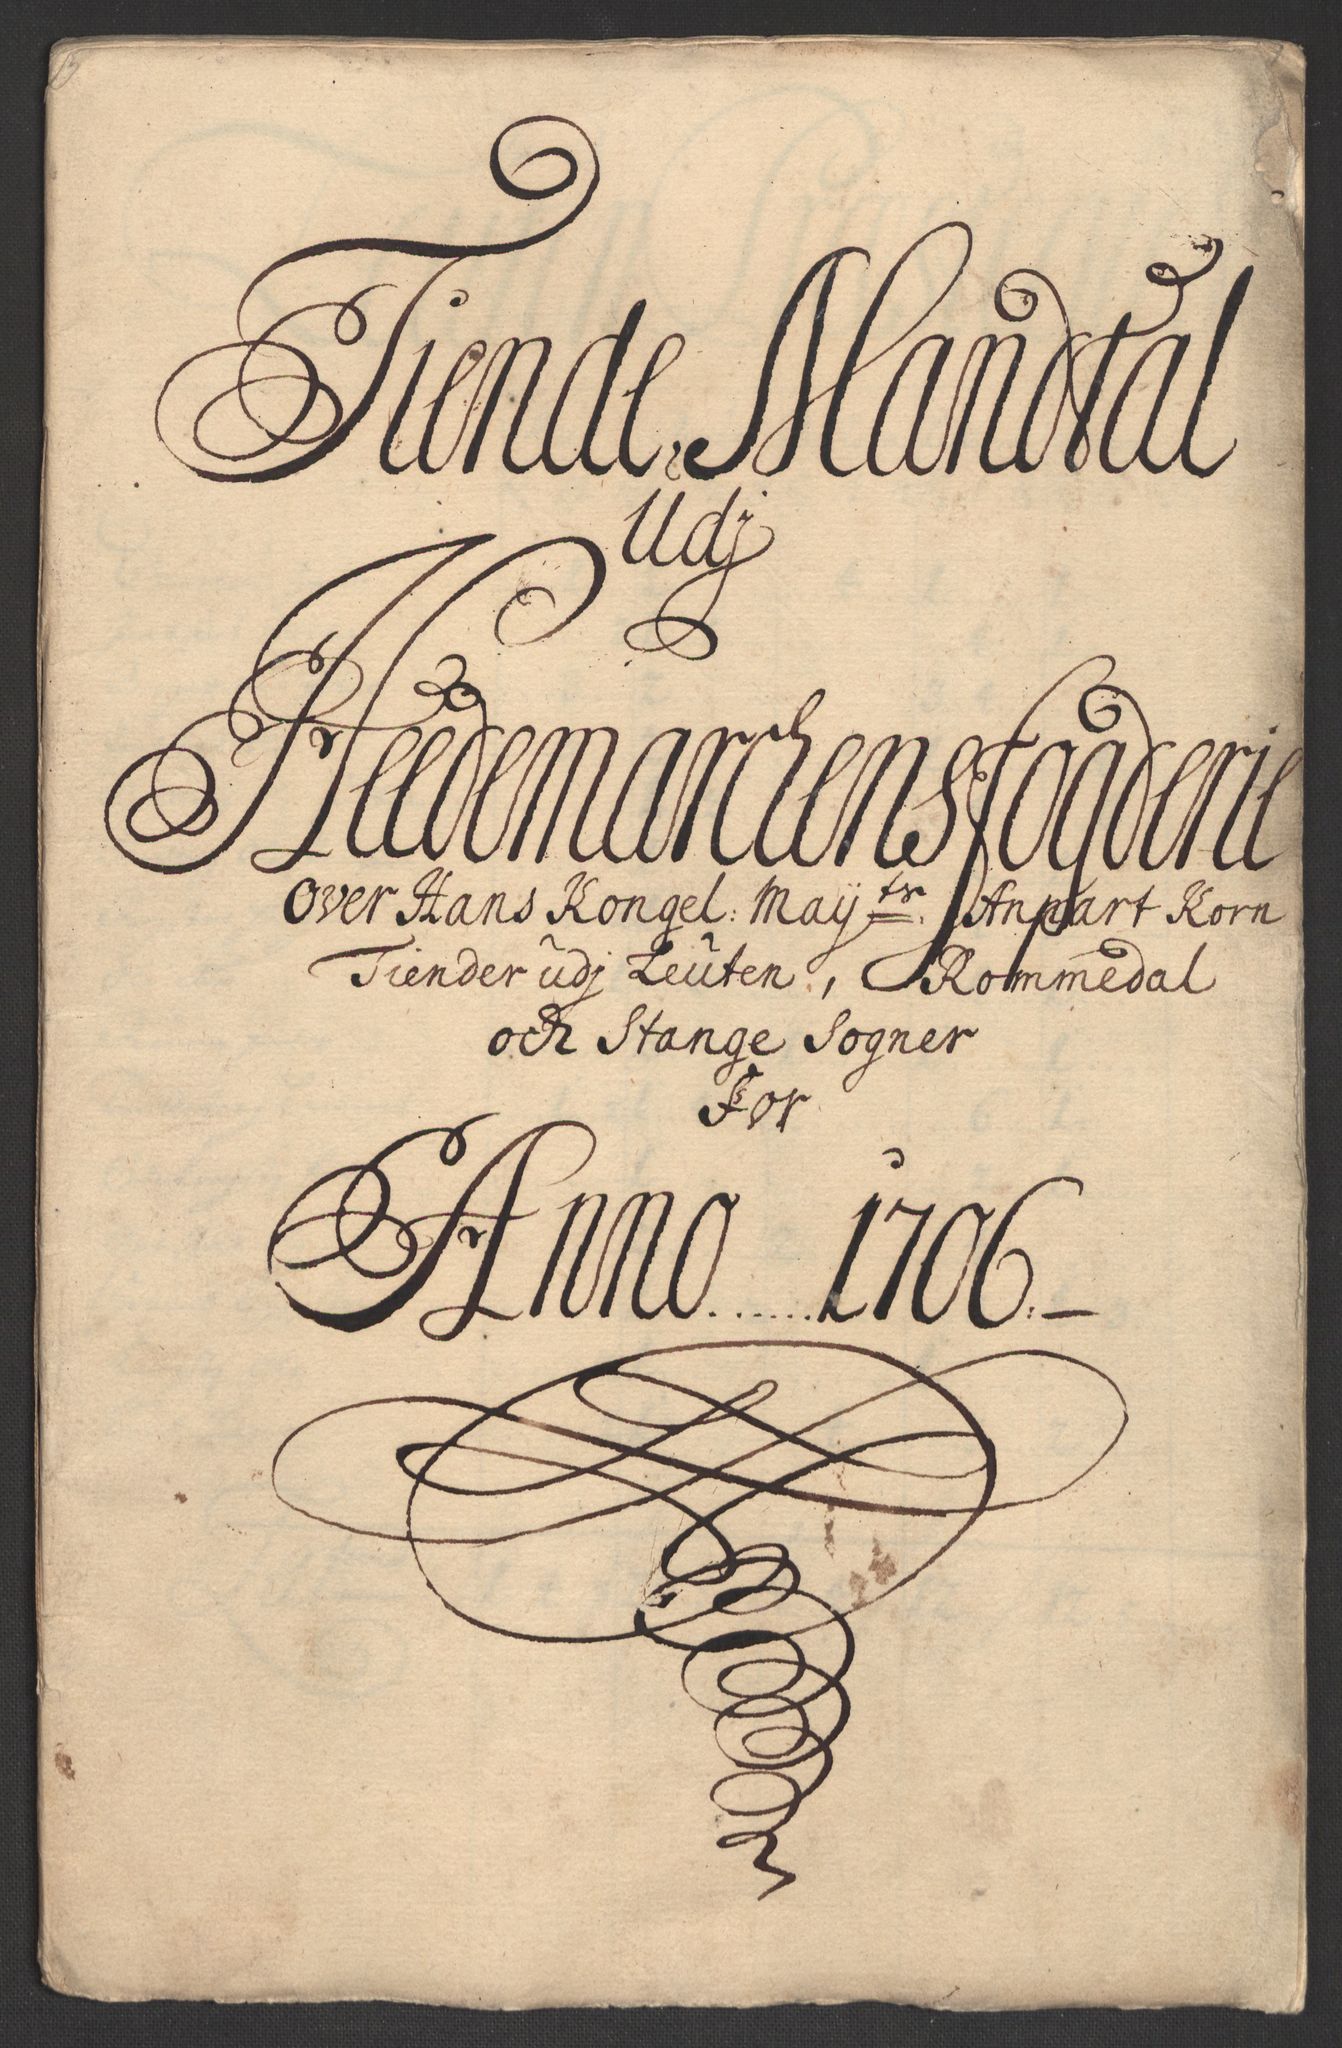 Tiende Mandtal
Udj
Heedemarchens fogderie
over Hans Kongel: Mayᵗʳ. Anpart Korn
Tiender udj Leuten, Rommedal
och Stange Sogner
For
Anno ...... 1706.